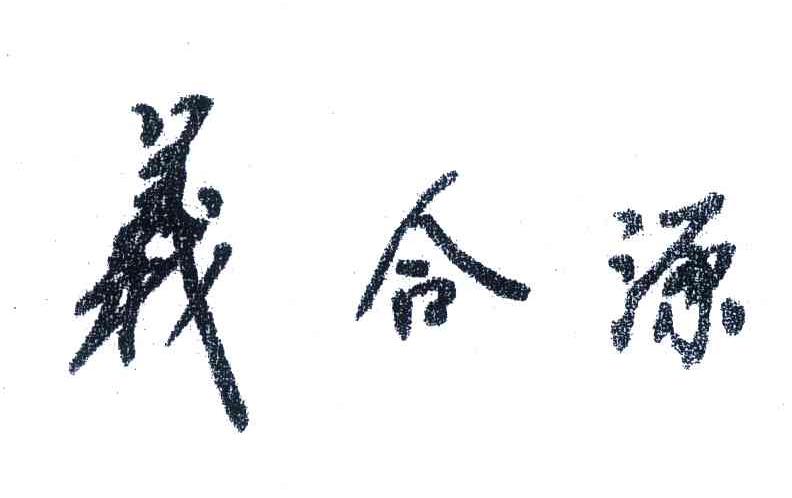 義合源